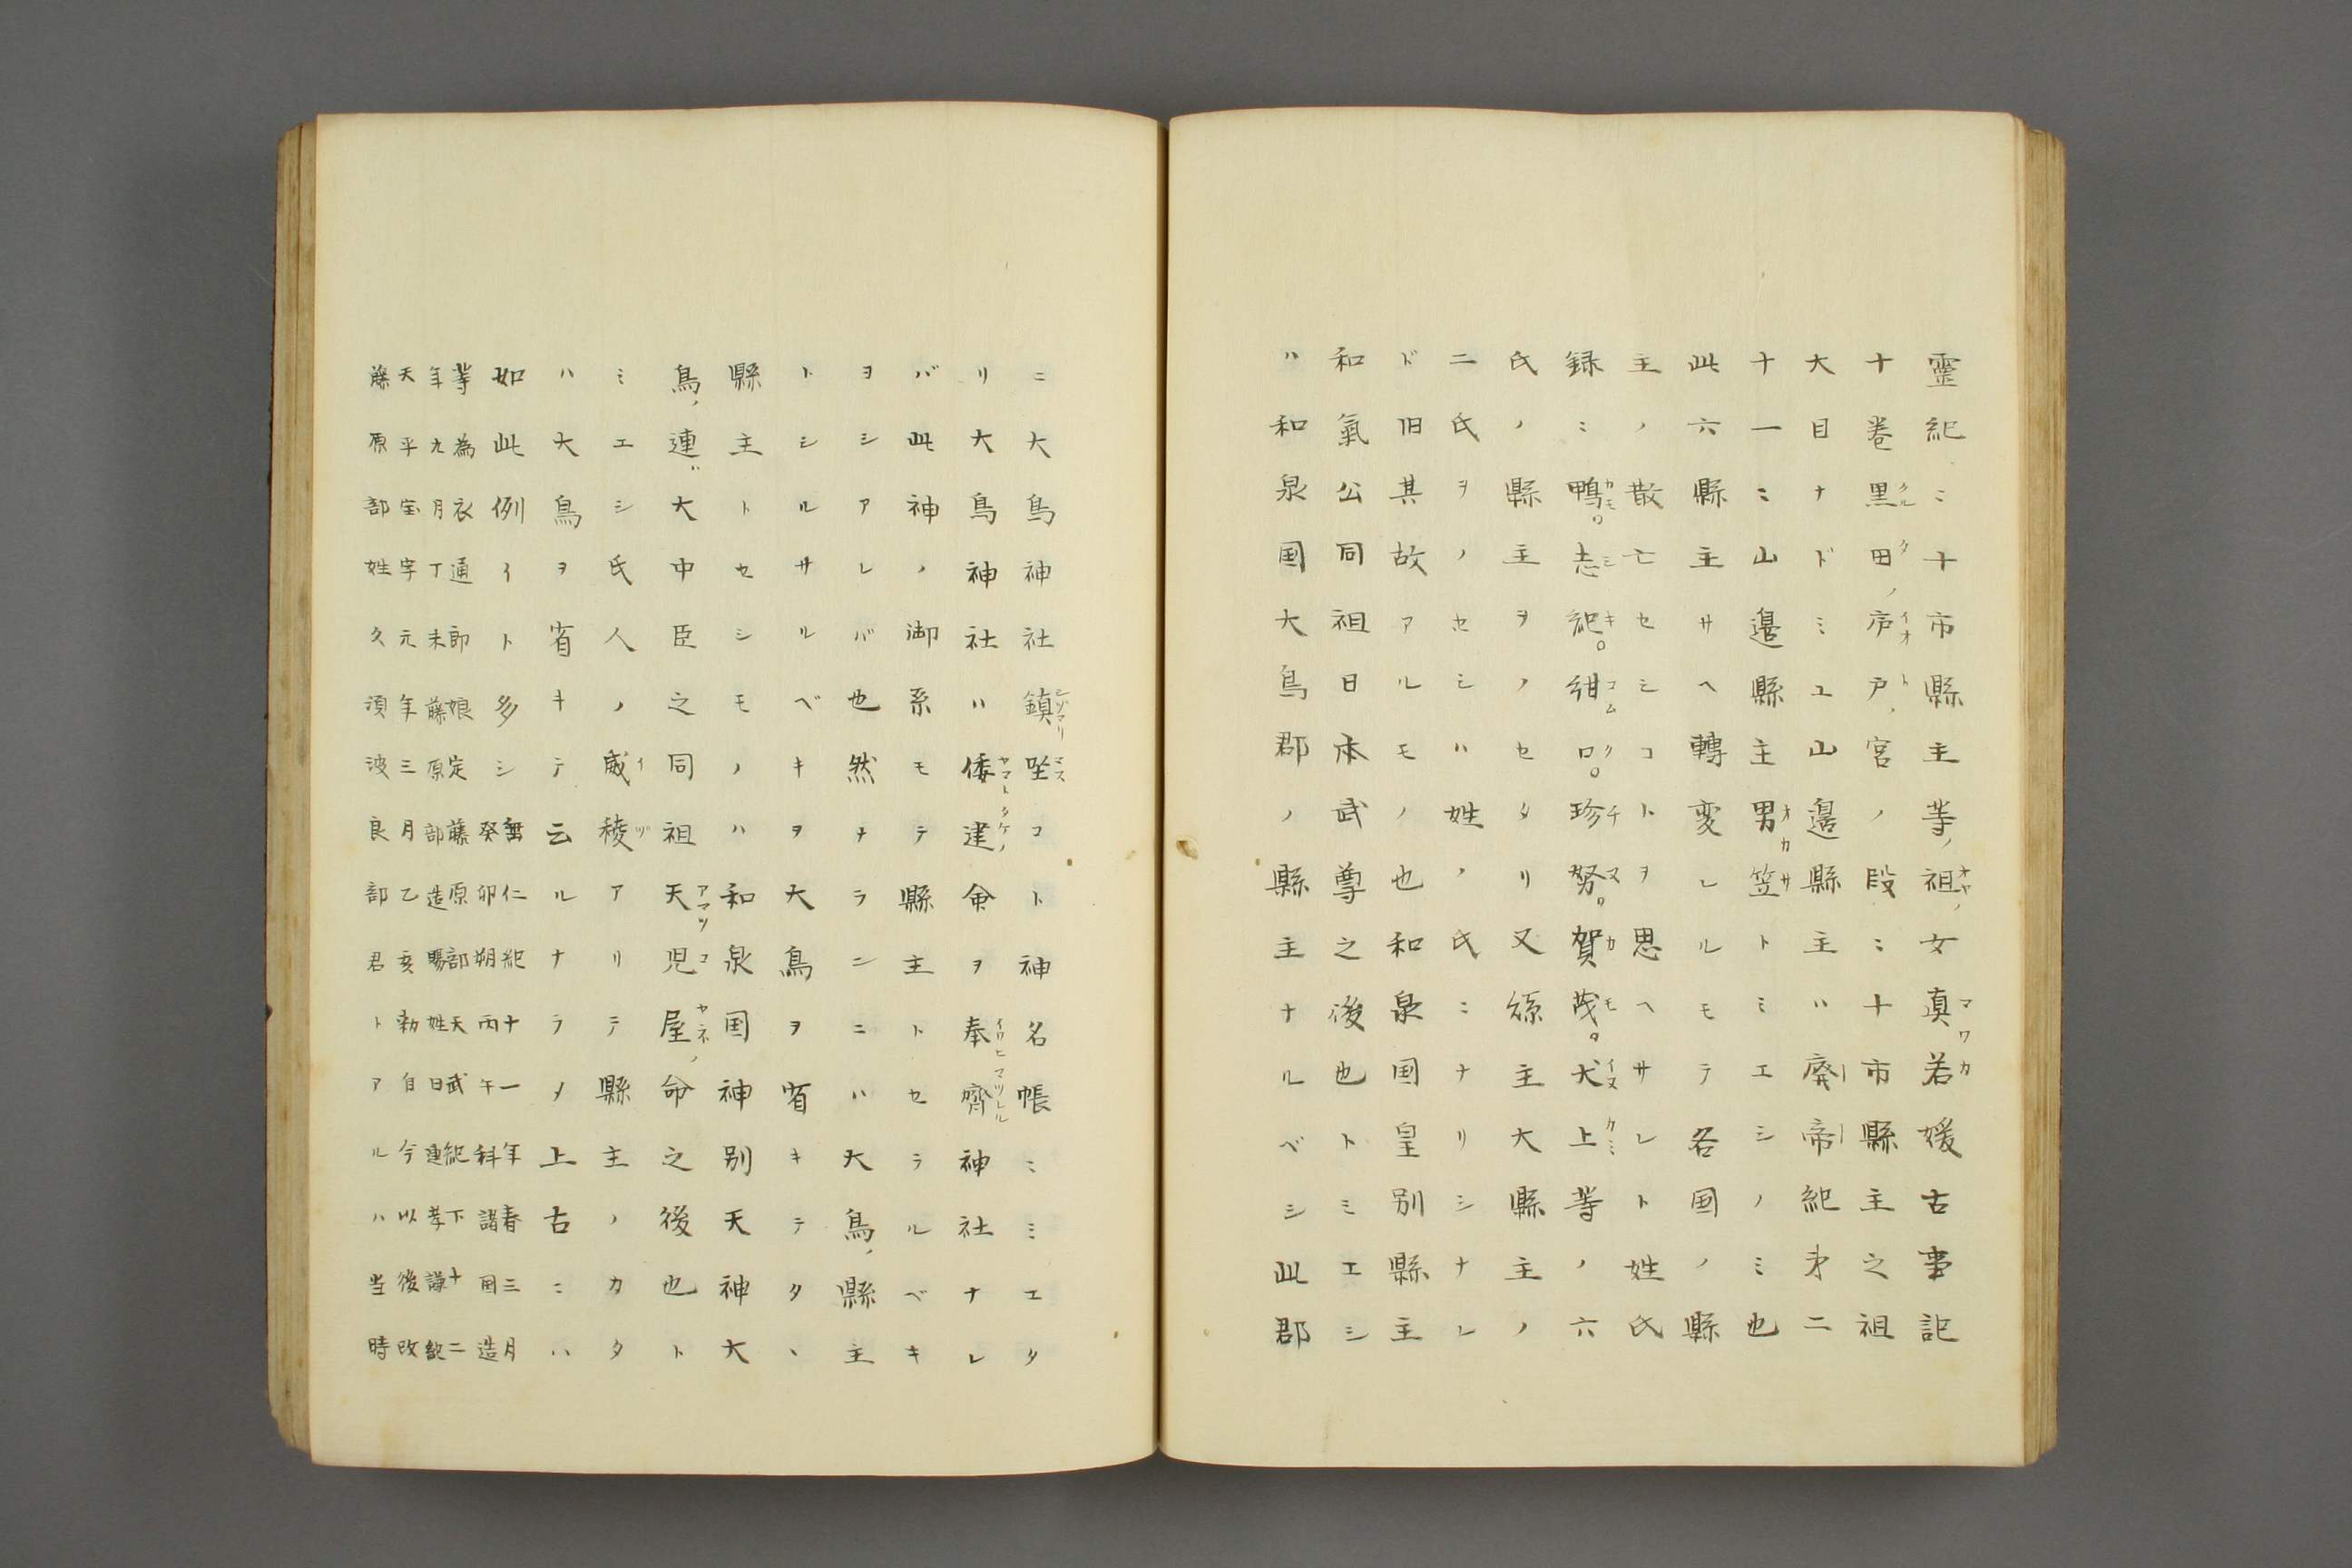 靈紀ニ十市縣主等ノ祖オヤノ女真マ若ワカ媛古事記
十巻黒クル田タノ庿イオ戸トノ宮ノ段ニ十市縣主之祖
大目ナドミユ山邉縣主ハ廃帝紀弟二
十一ニ山邉縣主男オ笠カサトミエシノミ也
此六縣主サヘ轉変レルモテ各国ノ縣
主ノ散亡セシコトヲ思ヘサレト姓氏
録ニ鴨カモ。志シ紀キ。紺コム口クチ。珍チ努ヌ。賀カ茂モ。犬イヌ上カミ等ノ六
氏ノ縣主ヲノセタリ又縣主大縣主ノ
二氏ヲノセシハ姓ノ氏ニナリシナレ
ド旧其故アルモノ也和泉国皇別縣主
和氣公同祖日本武尊之後也トミエシ
ハ和泉国大鳥郡ノ縣主ナルベシ此郡
ニ大鳥神社鎮シヅマリ坐マスコト神名帳ニミエタ
リ大鳥神社ハ倭ヤマト建タケノ命ヲ奉イワヒ齊マツレル神社ナレ
バ此神ノ御系モテ縣主トセラルベキ
ヲシアレバ也然ナラニニハ大鳥ノ縣主
トシルサルベキヲ大鳥ヲ省キテタヽ
縣主トセシモノハ和泉国神別天神大
鳥ノ連ハ大中臣之同祖天アマツ児コ屋ヤネノ命之後也ト
ミエシ氏人ノ威イ稜ヅアリテ縣主ノカタ
ハ大鳥ヲ省キテ云ルナラメ上古ニハ
如此例イト多シ
無仁紀十一年春三月
癸卯朔丙午科諸国造
等為衣通郎娘定藤原部天武紀下十二
年九月丁未藤原部造賜姓日連孝謙紀
天平宝字元年三月乙亥勅自今以後改
藤原部姓久須波良部君トアルハ当時